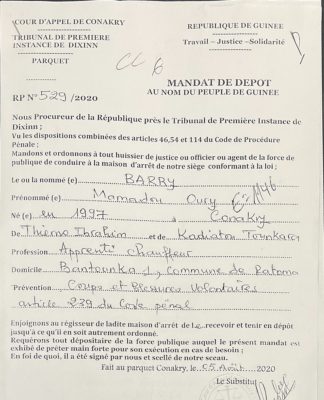 COUR D'APPEL DE CONAKRY
REPUBLIQUE DE GUINEE
TRIBUNAL DE PREMIERE
INSTANCE DE DIXINN
Travail – Justice –Solidarité
PARQUET
MANDAT DE DEPOT
AU NOM DU PEUPLE DE GUINEE
RP N° 529 /2020
Nous Procureur de la République près le Tribunal de Première Instance de
Dixinn ;
Vu les dispositions combinées des articles 46,54 et 114 du Code de Procédure
Pénale ;
Mandons et ordonnons à tout huissier de justice ou officier ou agent de la force
publique de conduire à la maison d'arrêt de notre siège conformant à la loi ;
Le ou la nommé (e) BARRY
Prénommé (e) Mamadou Oury
Né (e) en 1997 à Conakry
De Thierno Ibrahim et de Kadiatou Tounkara
Profession Apprenti chauffeur
Domicile Bantounka 1, Commune de Ratoma
Prévention Coups et Blessures Volontaires
article 239 du Code pénal
Enjoignons au régisseur de ladite maison d'arrêt de le recevoir et tenir en dépôt
jusqu'à ce qu'il en soit autrement ordonné.
Requérons tout dépositaire de la force publique auquel le présent mandat est
exhibé de prêter main forte pour son exécution en cas de besoin ;
En foi de quoi, il a été signé par nous et scellé de notre sceau.
Fait au parquet Conakry, le 05 Août 2020
Le Substitut